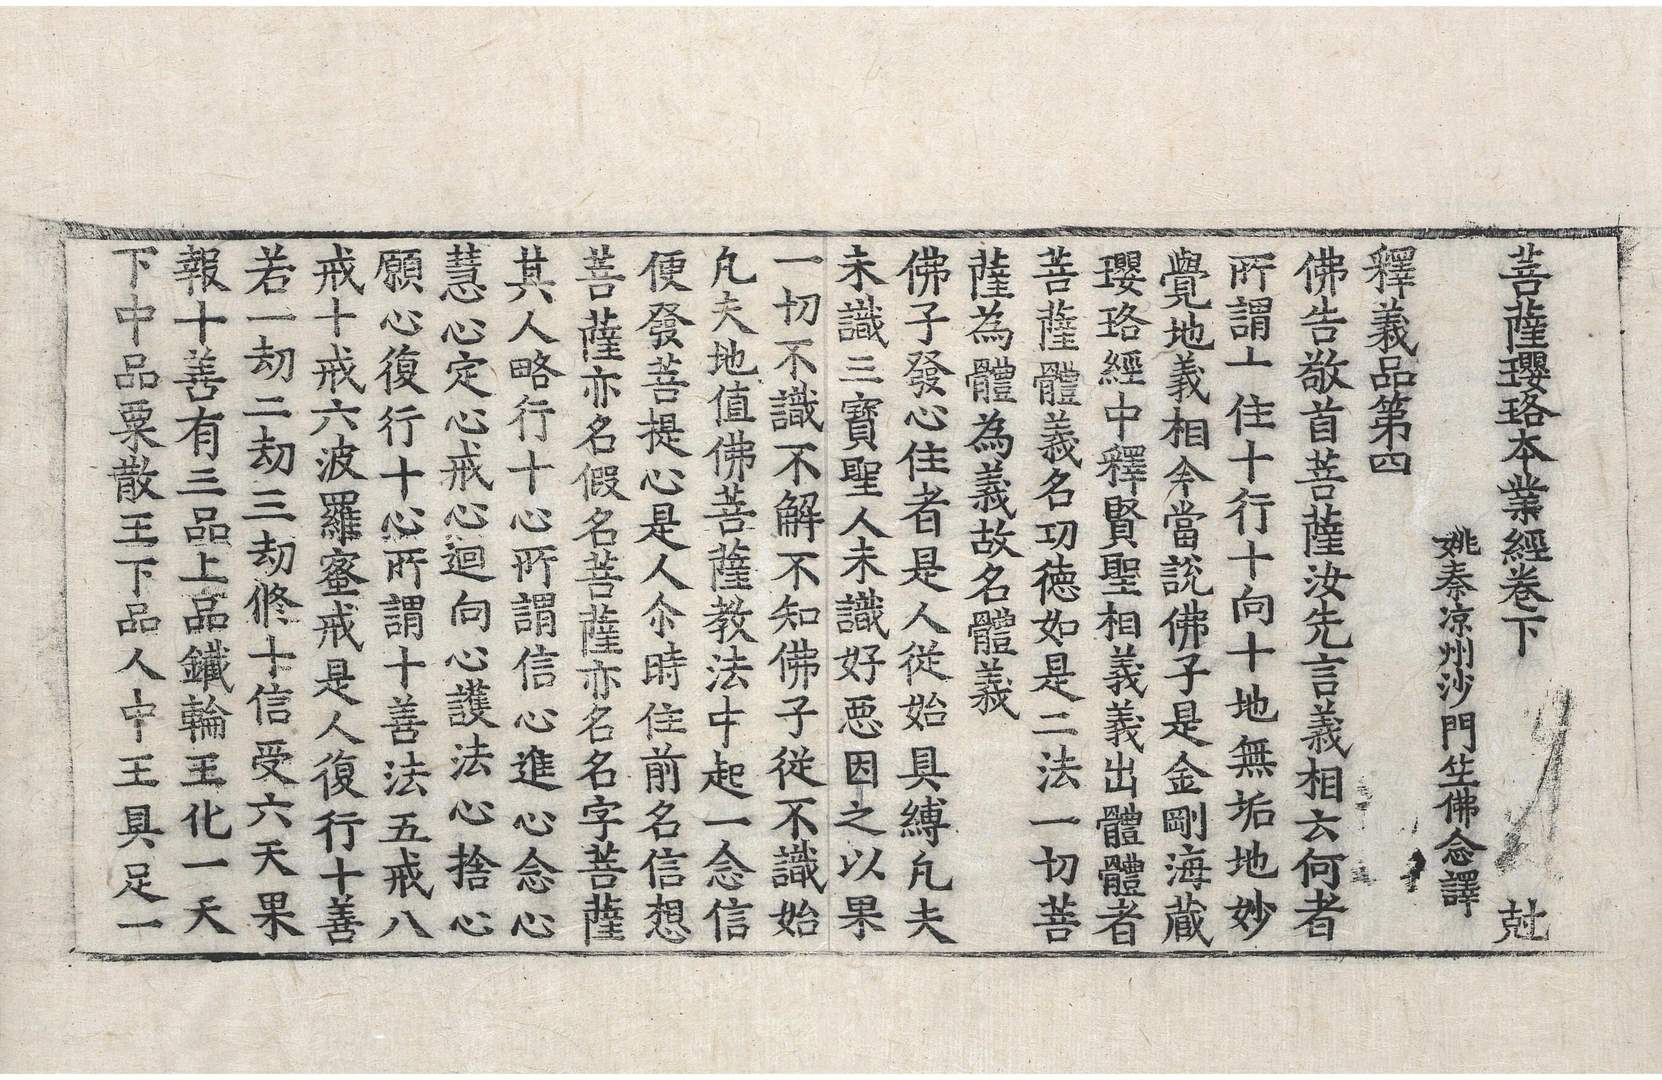 菩薩瓔珞本業經卷下　尅
姚秦凉州沙門竺佛念譯
釋義品第四
佛告敬首菩薩汝先言義相云何者
所謂十住十行十向十地無垢地妙
覺地義相今當說佛子是金剛海藏
瓔珞經中釋賢聖相義義出體體者
菩薩體義名功德如是二法一切菩
薩為體為義故名體義
佛子發心住者是人從始具縛凡夫
未識三寶聖人未識好惡因之以果
一切不識不解不知佛子從不識始
凡夫地值佛菩薩教法中起一念信
便發菩提心是人尒時住前名信想
菩薩亦名假名菩薩亦名名字菩薩
其人略行十心所謂信心進心念心
慧心定心戒心迴向心護法心捨心
願心復行十心所謂十善法五戒八
戒十戒六波羅蜜戒是人復行十善
若一劫二劫三劫修十信受六天果
報十善有三品上品鐵輪王化一天
下中品粟散王下品人中王具足一